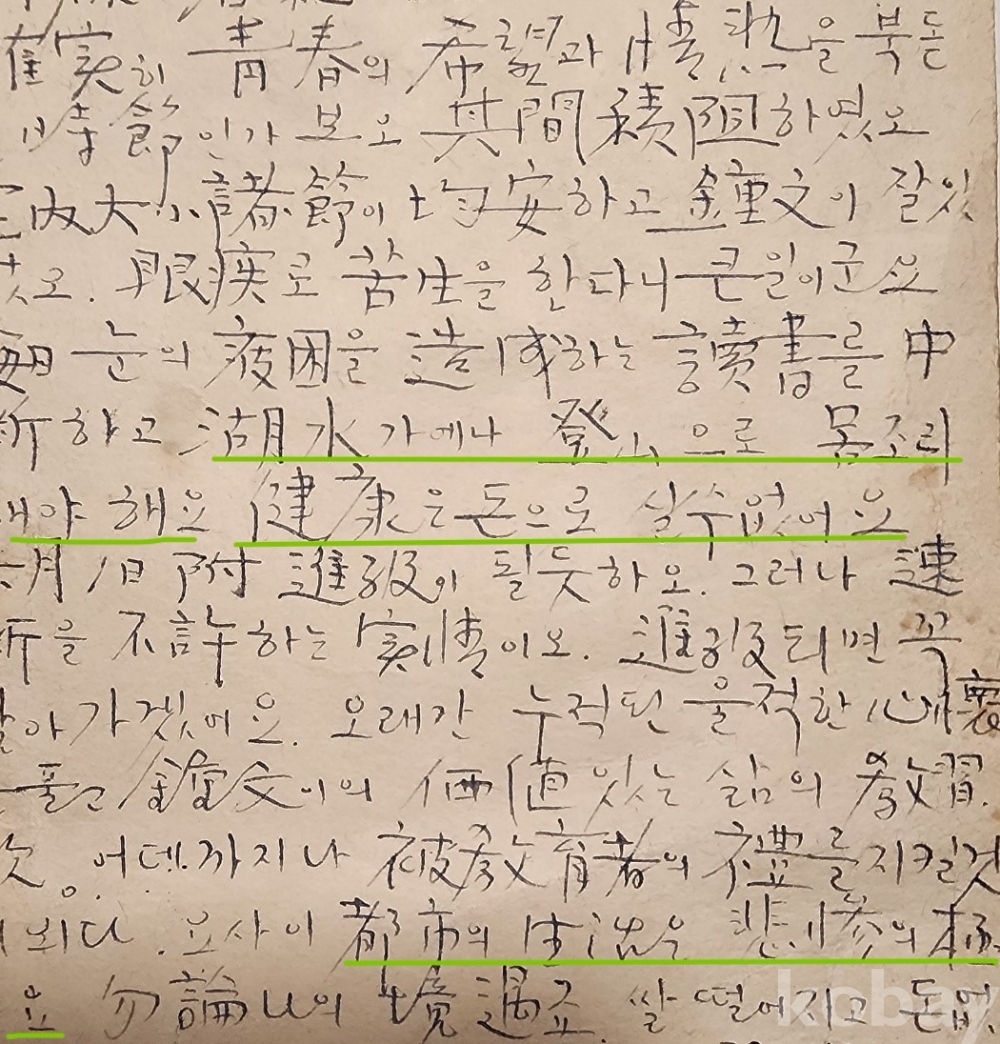 確実히 靑春의 希望과 情熱을 북돋
時節인가 보오 其間積阻하엿오
宅內大小諸節이 均安하고 鍾文이 잘있
오. 眼疾로 苦生을 한다니 큰일이군요
每日 눈의 疲困을 造成하는 讀書를 中
断하고 湖水가에나 登山으로 몸조리
해야 해요 健康은 돈으로 살수없어요
六月 1日附 進級이 될듯하오. 그러나 速
断을 不許하는 実情이오. 進級되면 꼭
찾아가겟어요. 오래간 누적된 울적한 心懷
풀고 鍾文이의 価値있는 삶의 敎習.
어데까지나 被敎育者의 礼를 지킬것
외다. 요사이 都市의 生活은 悲慘의 極
요 勿論 나의 境遇죠. 쌀 떨어지고 돈없
kobay